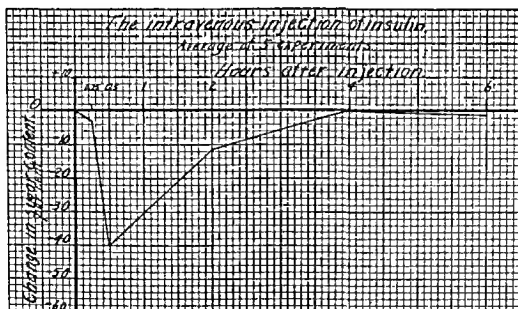 The intravenous injection of insulin.
Average of 5 experiments.
Hours after injection.
+10 .25 0.5 1 2 4 6
0
-10
-20
-30
-40
-50
-60
Change in sugar content.